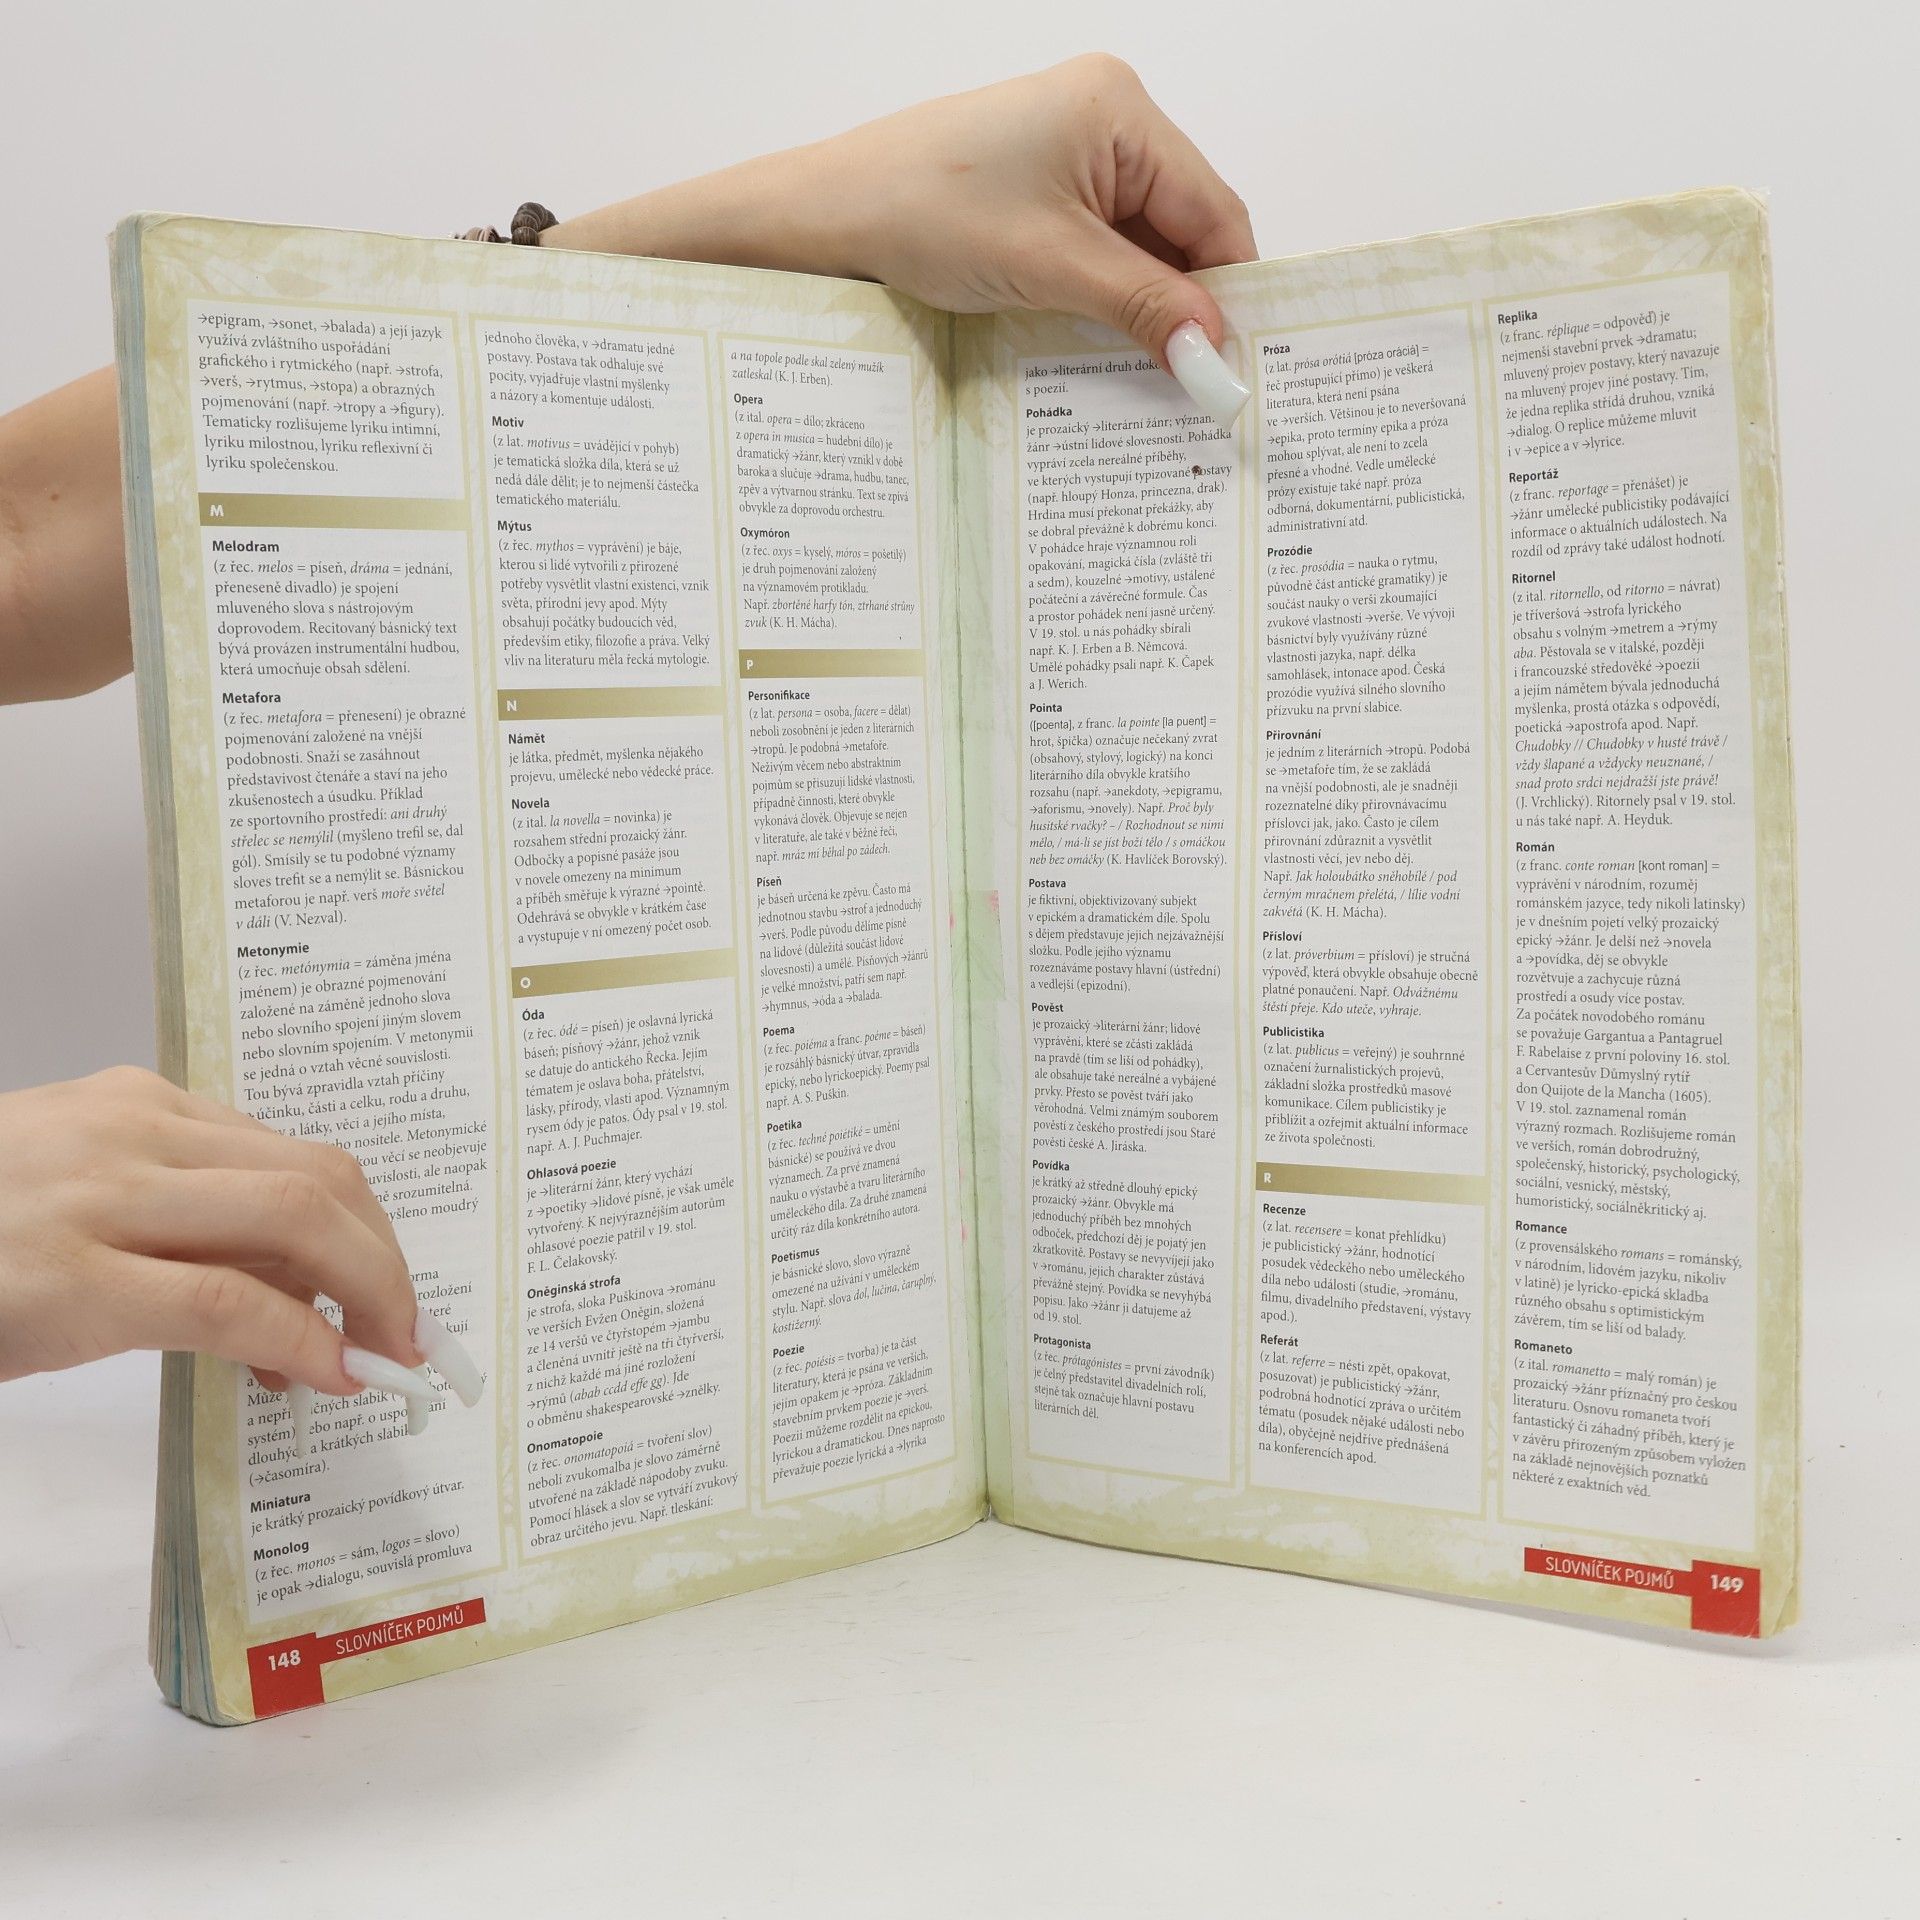 →epigram, →sonet, →balada) a její jazyk
využívá zvláštního uspořádání
grafického i rytmického (např. →strofa,
→verš, →rytmus, →stopa) a obrazných
pojmenování (např. →tropy a →figury).
Tematicky rozlišujeme lyriku intimní,
lyriku milostnou, lyriku reflexivní či
lyriku společenskou.
M
Melodram
(z řec. melos = píseň, dráma = jednání,
přeneseně divadlo) je spojení
mluveného slova s nástrojovým
doprovodem. Recitovaný básnický text
bývá provázen instrumentální hudbou,
která umocňuje obsah sdělení.
Metafora
(z řec. metafora = přenesení) je obrazné
pojmenování založené na vnější
podobnosti. Snaží se zasáhnout
představivost čtenáře a staví na jeho
zkušenostech a úsudku. Příklad
ze sportovního prostředí: ani druhý
střelec se nemýlil (myšleno trefil se, dal
gól). Smísily se tu podobné významy
sloves trefit se a nemýlit se. Básnickou
metaforou je např. verš moře světel
v dáli (V. Nezval).
Metonymie
(z řec. metónymia = záměna jména
jménem) je obrazné pojmenování
založené na záměně jednoho slova
nebo slovního spojení jiným slovem
nebo slovním spojením. V metonymii
se jedná o vztah věcné souvislosti.
Tou bývá zpravidla vztah příčiny
účinku, části a celku, rodu a druhu,
a látky, věci a jejího místa,
nositele. Metonymické
věcí se neobjevuje
ale naopak
srozumitelná.
moudrý
rozložení
Může
slabik
a nepří
systém) např. o uspo
a krátkých slabik
(→časomíra).
Miniatura
je krátký prozaický povídkový útvar.
Monolog
(z řec. monos = sám, logos = slovo)
je opak →dialogu, souvislá promluva
148 SLOVNÍČEK POJMŮ
jednoho člověka, v →dramatu jedné
postavy. Postava tak odhaluje své
pocity, vyjadřuje vlastní myšlenky
a názory a komentuje události.
Motiv
(z lat. motivus = uvádějící v pohyb)
je tematická složka díla, která se už
nedá dále dělit; je to nejmenší částečka
tematického materiálu.
Mýtus
(z řec. mythos = vyprávění) je báje,
kterou si lidé vytvořili z přirozené
potřeby vysvětlit vlastní existenci, vznik
světa, přírodní jevy apod. Mýty
obsahují počátky budoucích věd,
především etiky, filozofie a práva. Velký
vliv na literaturu měla řecká mytologie.
N
Námět
je látka, předmět, myšlenka nějakého
projevu, umělecké nebo vědecké práce.
Novela
(z ital. la novella = novinka) je
rozsahem střední prozaický žánr.
Odbočky a popisné pasáže jsou
v novele omezeny na minimum
a příběh směřuje k výrazné →pointě.
Odehrává se obvykle v krátkém čase
a vystupuje v ní omezený počet osob.
O
Óda
(z řec. ódé = píseň) je oslavná lyrická
báseň; písňový →žánr, jehož vznik
se datuje do antického Řecka. Jejím
tématem je oslava boha, přátelství,
lásky, přírody, vlasti apod. Významným
rysem ódy je patos. Ódy psal v 19. stol.
např. A. J. Puchmajer.
Ohlasová poezie
je →literární žánr, který vychází
z →poetiky →lidové písně, je však uměle
vytvořený. K nejvýraznějším autorům
ohlasové poezie patřil v 19. stol.
F. L. Čelakovský.
Oněginská strofa
je strofa, sloka Puškinova →románu
ve verších Evžen Oněgin, složená
ze 14 veršů ve čtyřstopém →jambu
a členěná uvnitř ještě na tři čtyřverší,
z nichž každé má jiné rozložení
→rýmů (abab ccdd effe gg). Jde
o obměnu shakespearovské →znělky.
Onomatopoie
(z řec. onomatopoiá = tvoření slov)
neboli zvukomalba je slovo záměrně
utvořené na základě nápodoby zvuku.
Pomocí hlásek a slov se vytváří zvukový
obraz určitého jevu. Např. tleskání:
a na topole podle skal zelený mužík
zatleskal (K. J. Erben).
Opera
(z ital. opera = dílo; zkráceno
z opera in musica = hudební dílo) je
dramatický →žánr, který vznikl v době
baroka a slučuje →drama, hudbu, tanec,
zpěv a výtvarnou stránku. Text se zpívá
obvykle za doprovodu orchestru.
Oxymóron
(z řec. oxys = kyselý, móros = pošetilý)
je druh pojmenování založený
na významovém protikladu.
Např. zbortěné harfy tón, ztrhané strůny
zvuk (K. H. Mácha).
P
Personifikace
(z lat. persona = osoba, facere = dělat)
neboli zosobnění je jeden z literárních
→tropů. Je podobná →metafoře.
Neživým věcem nebo abstraktním
pojmům se přisuzují lidské vlastnosti,
případně činnosti, které obvykle
vykonává člověk. Objevuje se nejen
v literatuře, ale také v běžné řeči,
např. mráz mi běhal po zádech.
Píseň
je báseň určená ke zpěvu. Často má
jednotnou stavbu →strof a jednoduchý
→verš. Podle původu dělíme písně
na lidové (důležitá součást lidové
slovesnosti) a umělé. Písňových →žánrů
je velké množství, patří sem např.
→hymnus, →óda a →balada.
Poema
(z řec. poiéma a franc. poéme = báseň)
je rozsáhlý básnický útvar, zpravidla
epický, nebo lyrickoepický. Poemy psal
např. A. S. Puškin.
Poetika
(z řec. techné poiétiké = umění
básnické) se používá ve dvou
významech. Za prvé znamená
nauku o výstavbě a tvaru literárního
uměleckého díla. Za druhé znamená
určitý ráz díla konkrétního autora.
Poetismus
je básnické slovo, slovo výrazně
omezené na užívání v uměleckém
stylu. Např. slova dol, lučina, čaruplný,
kostižerný.
Poezie
(z řec. poiésis = tvorba) je ta část
literatury, která je psána ve verších,
jejím opakem je →próza. Základním
stavebním prvkem poezie je →verš.
Poezii můžeme rozdělit na epickou,
lyrickou a dramatickou. Dnes naprosto
převažuje poezie lyrická a →lyrika
jako →literární druh
s poezií.
Pohádka
je prozaický →literární žánr; význan.
žánr →ústní lidové slovesnosti. Pohádka
vypráví zcela nereálné příběhy,
ve kterých vystupují typizované postavy
(např. hloupý Honza, princezna, drak).
Hrdina musí překonat překážky, aby
se dobral převážně k dobrému konci.
V pohádce hraje významnou roli
opakování, magická čísla (zvláště tři
a sedm), kouzelné →motivy, ustálené
počáteční a závěrečné formule. Čas
a prostor pohádek není jasně určený.
V 19. stol. u nás pohádky sbírali
např. K. J. Erben a B. Němcová.
Umělé pohádky psali např. K. Čapek
a J. Werich.
Pointa
([poenta], z franc. la pointe [la puent] =
hrot, špička) označuje nečekaný zvrat
(obsahový, stylový, logický) na konci
literárního díla obvykle kratšího
rozsahu (např. →anekdoty, →epigramu,
→aforismu, →novely). Např. Proč byly
husitské rvačky? – / Rozhodnout se nimi
mělo, / má-li se jíst boží tělo / s omáčkou
neb bez omáčky (K. Havlíček Borovský).
Postava
je fiktivní, objektivizovaný subjekt
v epickém a dramatickém díle. Spolu
s dějem představuje jejich nejzávažnější
složku. Podle jejího významu
rozeznáváme postavy hlavní (ústřední)
a vedlejší (epizodní).
Pověst
je prozaický →literární žánr; lidové
vyprávění, které se zčásti zakládá
na pravdě (tím se liší od pohádky),
ale obsahuje také nereálné a vybájené
prvky. Přesto se pověst tváří jako
věrohodná. Velmi známým souborem
pověstí z českého prostředí jsou Staré
pověsti české A. Jiráska.
Povídka
je krátký až středně dlouhý epický
prozaický →žánr. Obvykle má
jednoduchý příběh bez mnohých
odboček, předchozí děj je pojatý jen
zkratkovitě. Postavy se nevyvíjejí jako
v →románu, jejich charakter zůstává
převážně stejný. Povídka se nevyhýbá
popisu. Jako →žánr ji datujeme až
od 19. stol.
Protagonista
(z řec. prótagónistes = první závodník)
je čelný představitel divadelních rolí,
stejně tak označuje hlavní postavu
literárních děl.
Próza
(z lat. prósa orótiá [próza oráciá] =
řeč prostupující přímo) je veškerá
literatura, která není psána
ve →verších. Většinou je to neveršovaná
→epika, proto termíny epika a próza
mohou splývat, ale není to zcela
přesné a vhodné. Vedle umělecké
prózy existuje také např. próza
odborná, dokumentární, publicistická,
administrativní atd.
Prozódie
(z řec. prosódia = nauka o rytmu,
původně část antické gramatiky) je
součást nauky o verši zkoumající
zvukové vlastnosti →verše. Ve vývoji
básnictví byly využívány různé
vlastnosti jazyka, např. délka
samohlásek, intonace apod. Česká
prozódie využívá silného slovního
přízvuku na první slabice.
Přirovnání
je jedním z literárních →tropů. Podobá
se →metafoře tím, že se zakládá
na vnější podobnosti, ale je snadněji
rozeznatelné díky přirovnávacímu
příslovci jak, jako. Často je cílem
přirovnání zdůraznit a vysvětlit
vlastnosti věcí, jev nebo děj.
Např. Jak holoubátko sněhobílé / pod
černým mračnem přelétá, / lílie vodní
zakvétá (K. H. Mácha).
Přísloví
(z lat. próverbium = přísloví) je stručná
výpověď, která obvykle obsahuje obecně
platné ponaučení. Např. Odvážnému
štěstí přeje. Kdo uteče, vyhraje.
Publicistika
(z lat. publicus = veřejný) je souhrnné
označení žurnalistických projevů,
základní složka prostředků masové
komunikace. Cílem publicistiky je
přiblížit a ozřejmit aktuální informace
ze života společnosti.
R
Recenze
(z lat. recensere = konat přehlídku)
je publicistický →žánr, hodnotící
posudek vědeckého nebo uměleckého
díla nebo události (studie, →románu,
filmu, divadelního představení, výstavy
apod.).
Referát
(z lat. referre = nésti zpět, opakovat,
posuzovat) je publicistický →žánr,
podrobná hodnotící zpráva o určitém
tématu (posudek nějaké události nebo
díla), obyčejně nejdříve přednášená
na konferencích apod.
Replika
(z franc. réplique = odpověď) je
nejmenší stavební prvek →dramatu;
mluvený projev postavy, který navazuje
na mluvený projev jiné postavy. Tím,
že jedna replika střídá druhou, vzniká
→dialog. O replice můžeme mluvit
i v →epice a v →lyrice.
Reportáž
(z franc. reportage = přenášet) je
→žánr umělecké publicistiky podávající
informace o aktuálních událostech. Na
rozdíl od zprávy také událost hodnotí.
Ritornel
(z ital. ritornello, od ritorno = návrat)
je tříveršová →strofa lyrického
obsahu s volným →metrem a →rýmy
aba. Pěstovala se v italské, později
i francouzské středověké →poezii
a jejím námětem bývala jednoduchá
myšlenka, prostá otázka s odpovědí,
poetická →apostrofa apod. Např.
Chudobky // Chudobky v husté trávě /
vždy šlapané a vždycky neuznané, /
snad proto srdci nejdražší jste právě!
(J. Vrchlický). Ritornely psal v 19. stol.
u nás také např. A. Heyduk.
Román
(z franc. conte roman [kont roman] =
vyprávění v národním, rozuměj
románském jazyce, tedy nikoli latinsky)
je v dnešním pojetí velký prozaický
epický →žánr. Je delší než →novela
a →povídka, děj se obvykle
rozvětvuje a zachycuje různá
prostředí a osudy více postav.
Za počátek novodobého románu
se považuje Gargantua a Pantagruel
F. Rabelaise z první poloviny 16. stol.
a Cervantesův Důmyslný rytíř
don Quijote de la Mancha (1605).
V 19. stol. zaznamenal román
výrazný rozmach. Rozlišujeme román
ve verších, román dobrodružný,
společenský, historický, psychologický,
sociální, vesnický, městský,
humoristický, sociálněkritický aj.
Romance
(z provensálského romans = románský,
v národním, lidovém jazyku, nikoliv
v latině) je lyricko-epická skladba
různého obsahu s optimistickým
závěrem, tím se liší od balady.
Romaneto
(z ital. romanetto = malý román) je
prozaický →žánr příznačný pro českou
literaturu. Osnovu romaneta tvoří
fantastický či záhadný příběh, který je
v závěru přirozeným způsobem vyložen
na základě nejnovějších poznatků
některé z exaktních věd.
SLOVNÍČEK POJMŮ 149